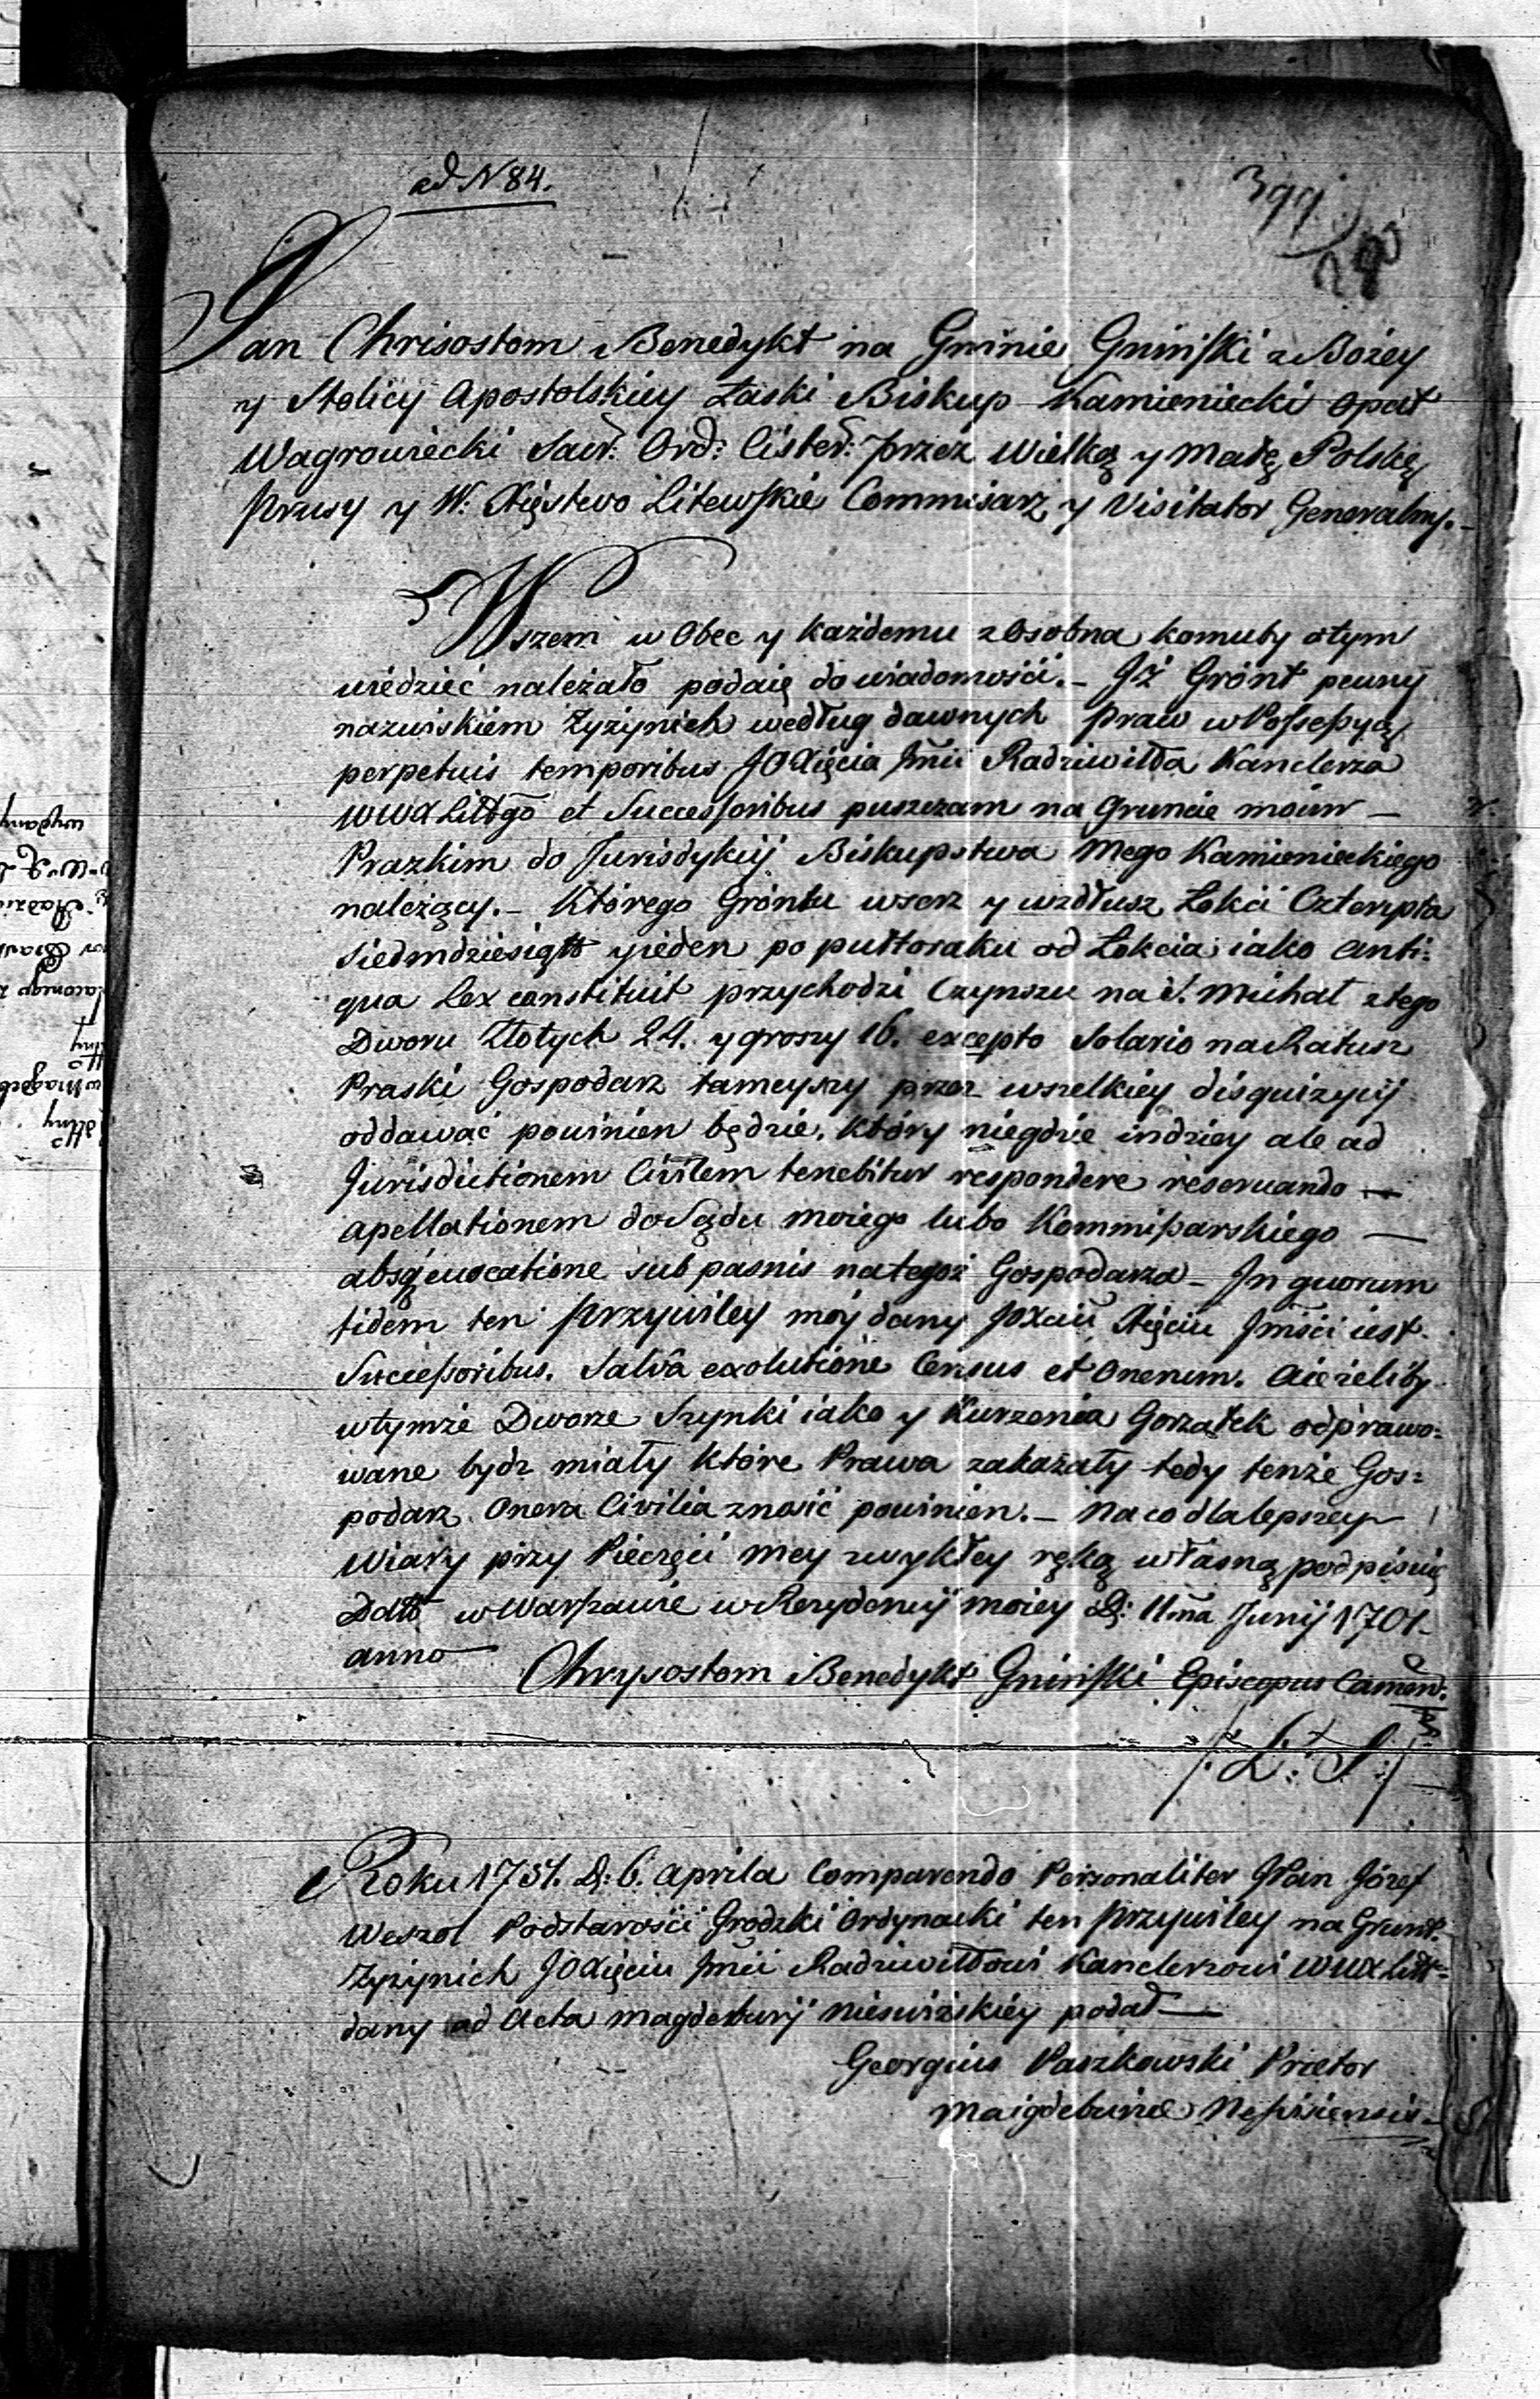 ad N 84.
399
Jan Chrisostom Benedykt na Gninie Gniński z Bożey
y Stolicy Apostolskiey Łaski Biskup Kamieniecki Opat
Wagrowiecki Sacr: Ord: Cister: przez Wielką y Małą Polskę
Prusy y W: Xięstwo Litewskie Commisarz y Visitator Generalny.
Wszem w Obec y każdemu z Osobna komuby o tym
wiedzieć należało podaię do wiadomości. – Iż Grónt pewny
nazwiskiem Zyżynich według dawnych praw w Possessyą
perpetuis temporibus JOXięcia Jmci Radziwiłła Kanclerza
WWXLittgo et Successoribus puszczam na Gruncie moim –
Prazkim do Jurisdykcij Biskupstwa Mego Kamienieckiego
należący. – Którego Gróntu wszerz y wzdłusz Łokci Czterysta
siedmdziesiątt y ieden po pułtoraku od Łokcia iako anti:
qua Lex constituit przychodzi Czynszu na S. Michał z tego
Dworu Złotych 24. y groszy 16. excepto Solario na Ratusz
Praski Gospodarz tameyszy przez wszelkiey disquizycij
oddawać powinien będzie. który niegdzie indziey ale ad
Jurisdictionem Civilem tenebitur respondere reservando –
apellationem do Sądu moiego lubo Kommissarskiego –
absq evocatione sub paenis na tegoż Gospodarza – In quorum
fidem ten przywiley móy dany JOXciu Xięciu Jmści iest.
Successoribus. Salvâ exolutione Census et Onerum. A ieżeliby
w tymże Dworze Szynki iako y Kurzenia Gorzałek odprawo:
wane bydz miały które Prawa zakazały tedy tenże Gos:
podarz Onera Civilia znosić powinien. – Na co dla lepszey
Wiary przy Pieczęci mey zwykłey ręką własną podpisuię
Datt w Warszawie w Rezydencij moiey D: 11ma Junij 1701.
anno
Chrysostom Benedykt Gniński Episcopus Camen:
/:L: S:/
Roku 1751. D: 6. Aprila Comparendo Personaliter JPan Józef
Weszol Podstarości Grodzki Ordynacki ten przywiley na Grunt
Zyżynich JOXięciu Jmci Radziwiłłowi Kanclerzowi WWXLitt:
dany ad Acta Magdeburij Nieswizskiey podał –
Georgius Paszkowski Praetor
Maigdeburiae Nesvisiensis